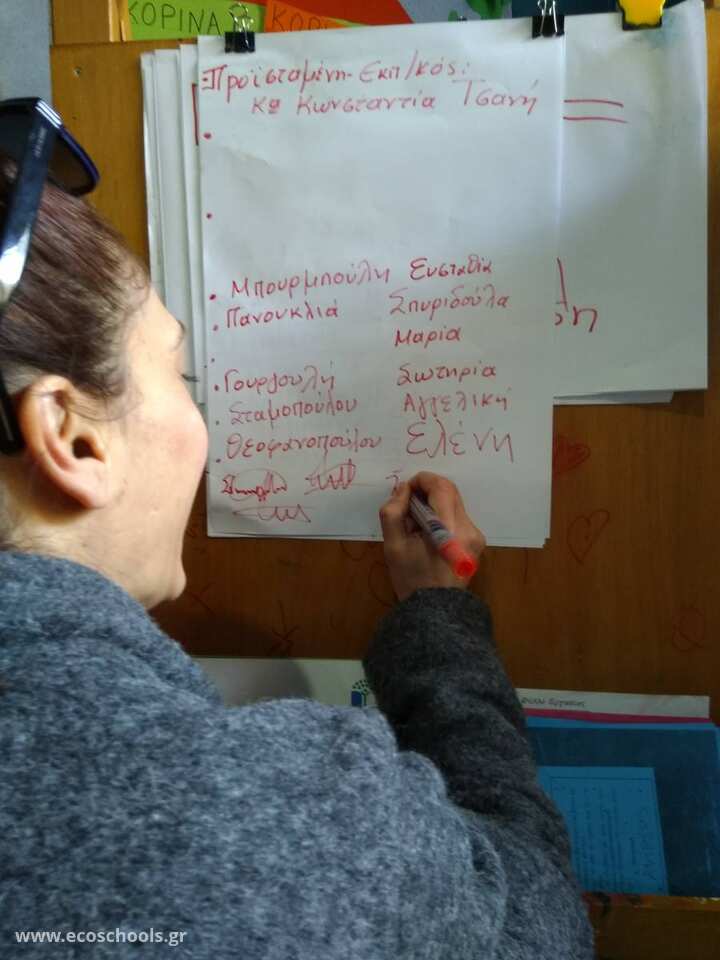 ΚΟΡΙΝΑ
ΚΟΡ
Προϊσταμένη-Εκπ/κός:
Κα Κωνσταντία Τσανή
Μπουρμπούλη Ευσταθία
Πανουκλιά Σπυριδούλα
Μαρία
Γουργουλή Σωτηρία
Σταμοπούλου Αγγελική
Θεοφανοπούλου Ελένη
www.ecoschools.gr